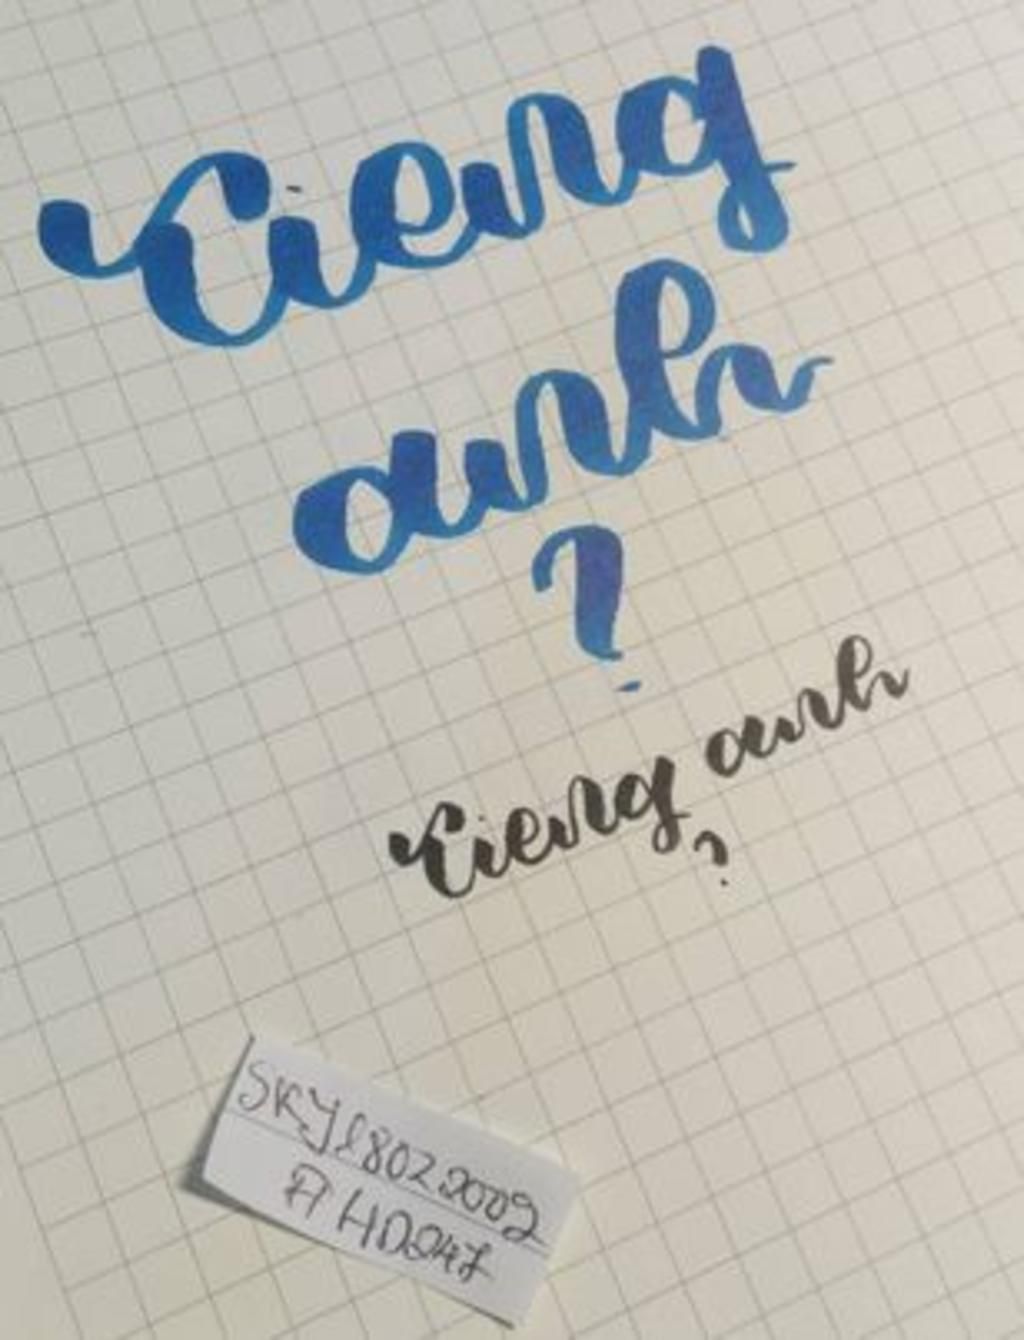 Cieng
anh
?
Cieng anh
?
SKY18022009
A HD247